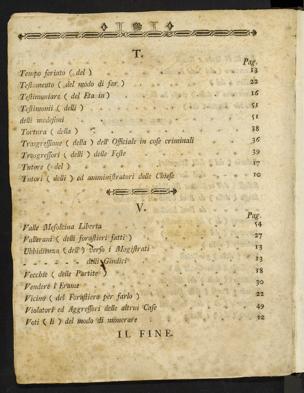 T.
Pag.
Tempo feriato ( del ) 13
Testamento ( del modo di far ) 22
Testimoniare ( del 16
Testimonii ( delli ) 51
delli medesimi 51
Tortura ( della ) 38
Trasgressione ( della ) dell' Officiale in cose criminali 36
Trasgressori ( delli ) delle Feste 39
Tutore ( del ) 17
Tutori ( delli ) ed amministratori delle Chiese 10
V.
Pag.
Valle Mesolcina Liberta 54
( delli forastieri fatti ) 27
Ubbidienza ( dell' ) verso i Magistrati 13
delli Giudici 13
Vecchie ( delle Partite ) 18
Vendere 30
Vicino ( del Forastiero per farlo ) 22
Violatori ed Aggressori delle altrui Case 49
Voti ( li ) del modo di numerare 12
IL FINE.